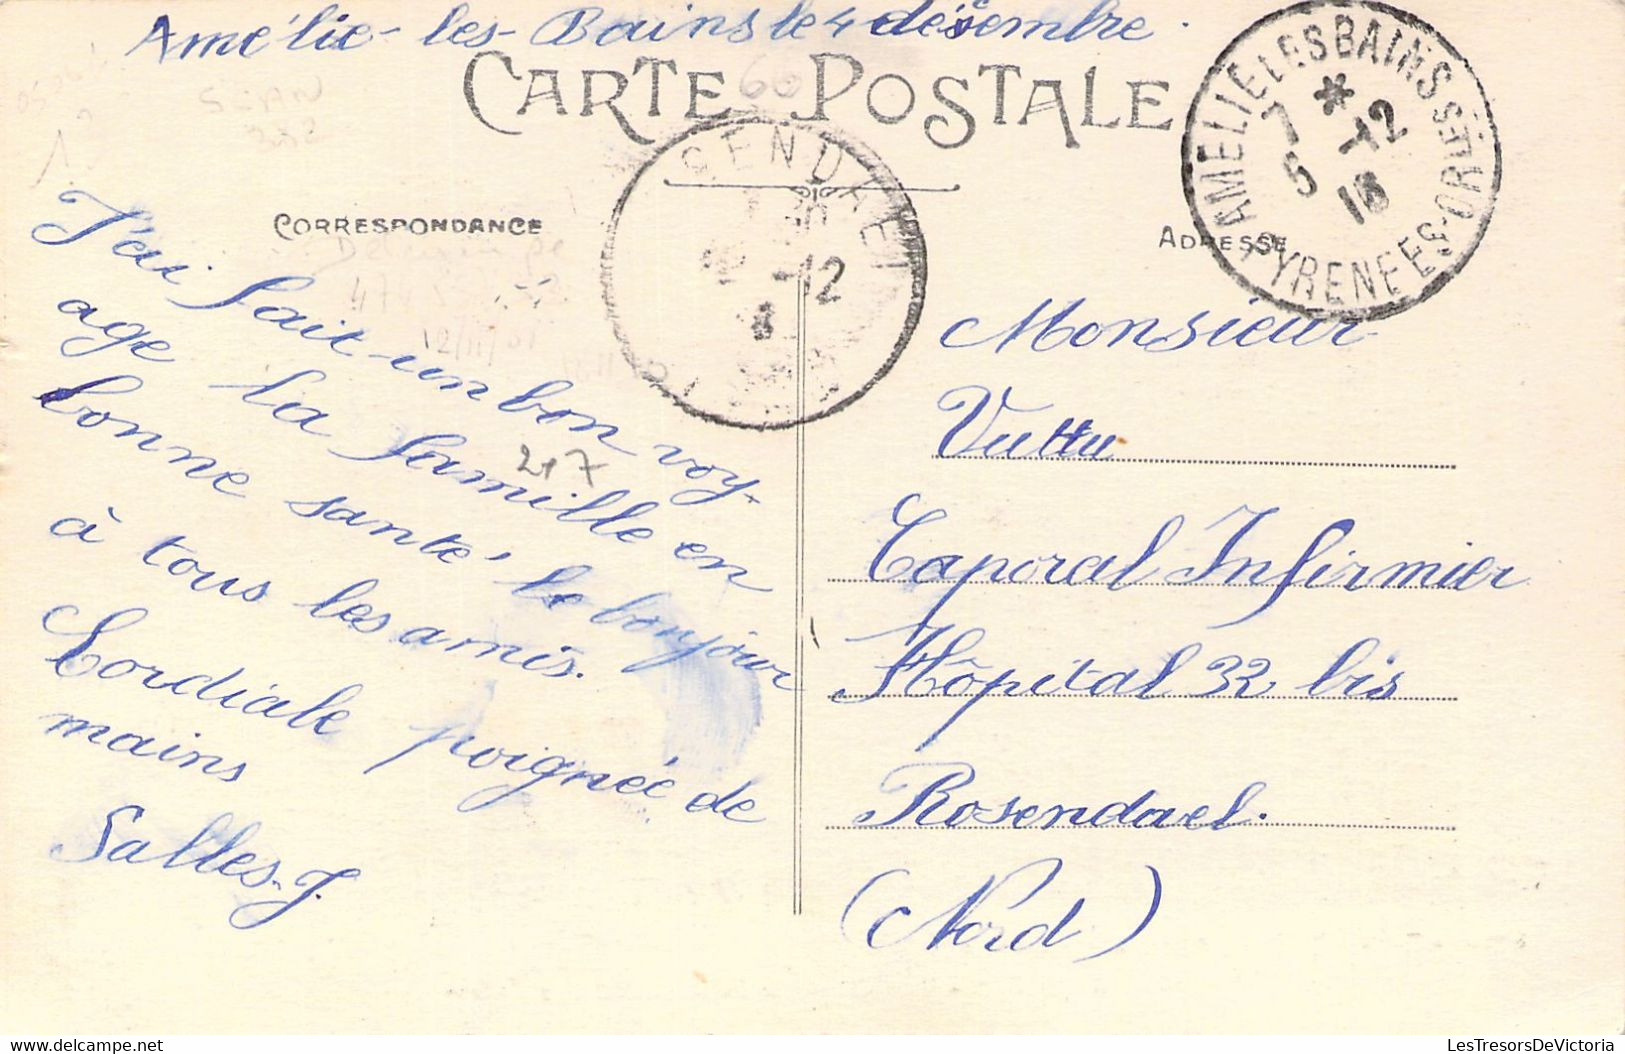 Amélie-les-Bains le 4 décembre.
CARTE POSTALE
CORRESPONDANCE
ADRESSE
AMELIE LES BAINS
PYRENEES-ORIES
7 * 12
5
ROSENDAEL
-12
J'ai fait un bon voy-
age la famille en
bonne santé le bonjour
à tous les amis.
Cordiale poignée de
mains
Salles-J.
217
Monsieur
Vuttu
Caporal Infirmier
Hôpital 32 bis
Rosendael.
(Nord)
http://www.delcampe.net
LesTresorsDeVictoria